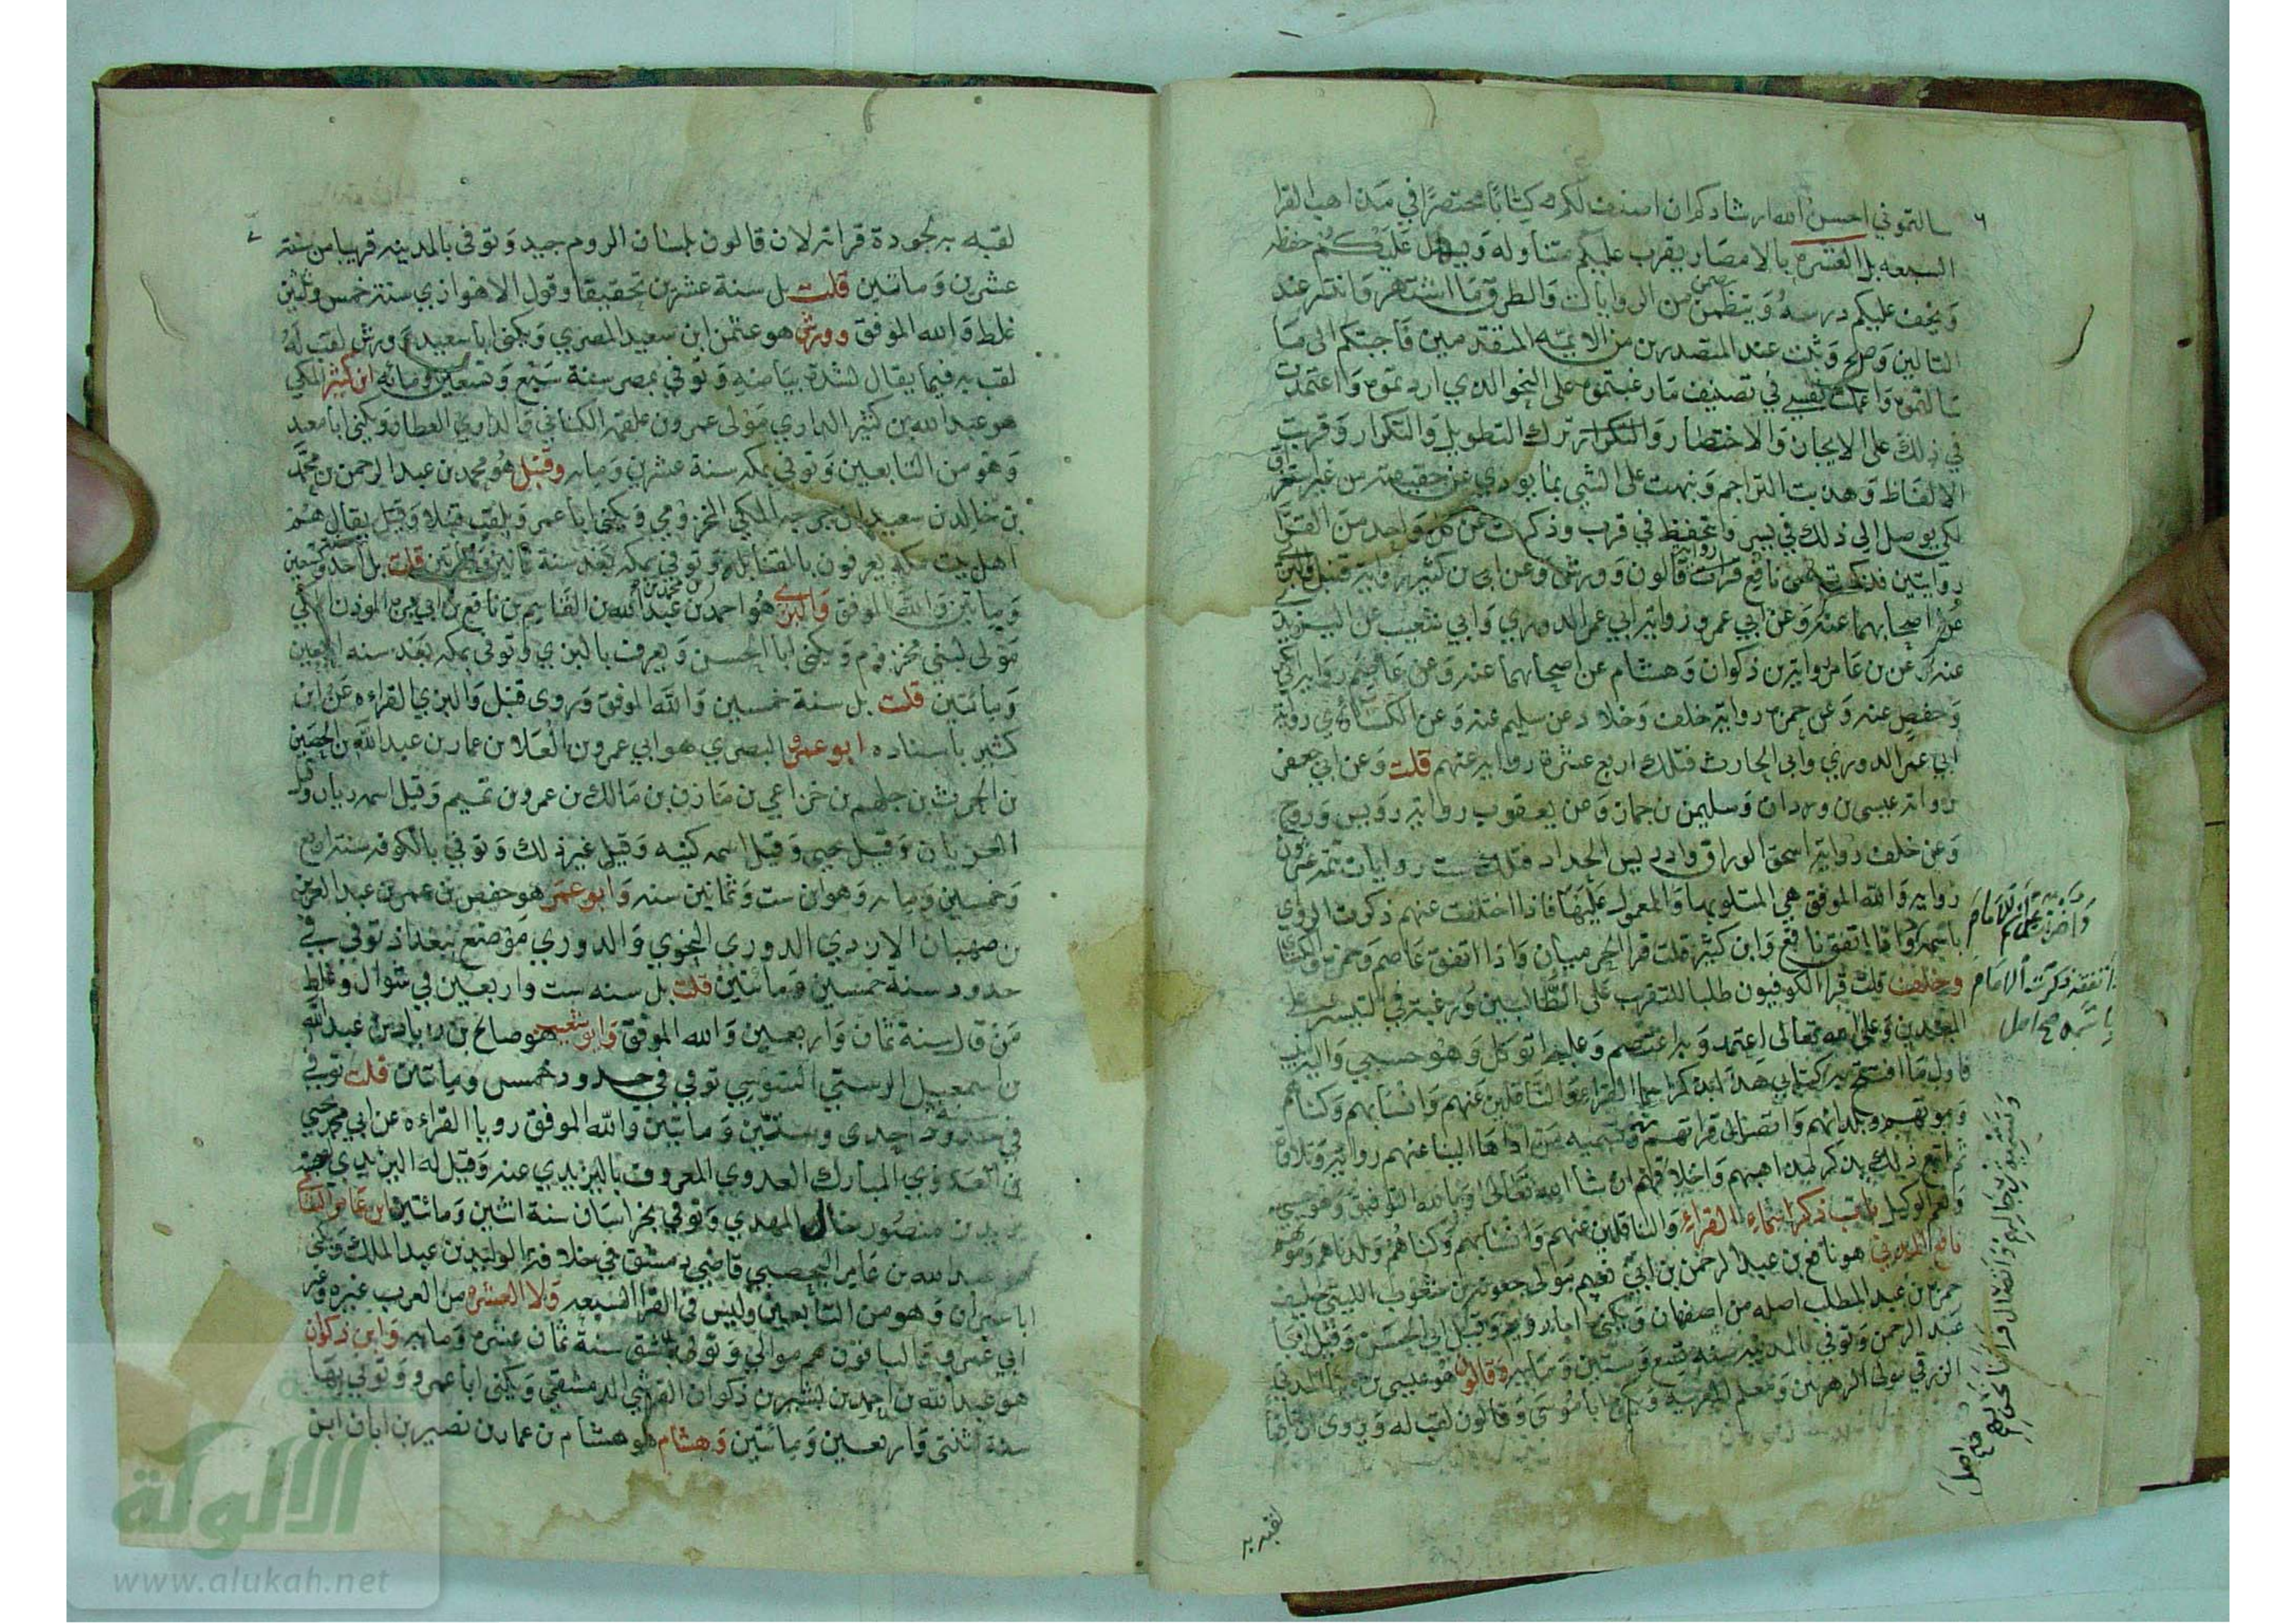 سالتموني احسن الله ارشادكم ان اصنف لكم كتابا مختصرا في مذاهب القرا
السبعه بل العشره بالامصار يقرب عليكم متناوله ويسهل عليكم حفظه
ويخف عليكم درسه ويتضمن من الروايات والطرق ما اشتهر وانتشر عند
التالين وصح وثبت عند المتصدرين من الايمه المتقدمين فاجبتكم الى ما
سالتموه واعملت نفسي في تصنيف ما رغبتموه على النحو الذي اردتموه واعتمدت
في ذلك على الايجاز والاختصار وترك التطويل والتكرار وقربت
الالفاظ وهذبت التراجم ونبهت على الشي بما يودي عن حقيقته من غير استغراق
لكي يوصل الى ذلك في يسر ويتحفظ في قرب وذكرت عن كل واحد من القرا
روايتين فذكرت عن نافع رواية قالون وورش وعن ابن كثير رواية قنبل والبزي
عن اصحابهما عنه وعن ابي عمرو رواية ابي عمر الدوري وابي شعيب عن اليزيدي
عنه وعن بن عامر رواية بن ذكوان وهشام عن اصحابهما عنه وعن عاصم رواية ابي بكر
وحفص عنه وعن حمزه رواية خلف وخلاد عن سليم عنه وعن الكسائي رواية
ابي عمر الدوري وابي الحارث فتلك اربع عشرة رواية عنهم قلت وعن ابي جعفر
رواية عيسى بن وردان وسليمن بن جماز وعن يعقوب رواية رويس وروح
وعن خلف رواية اسحق الوراق وادريس الحداد فتلك ست روايات تتمه عشرون
رواية والله الموفق هي المتلو بها والمعمول عليها فاذا اختلفت عنهم ذكرت الراوي
باسمه واذا اتفق نافع وابن كثير قلت قرا الحرميان واذا اتفق عاصم وحمزه والكسائي
وخلف قلت قرا الكوفيون طلبا للتقريب على الطالبين ورغبة في التيسير على
المبتدين وعلى الله تعالى اعتمد وبه اعتصم وعليه اتوكل وهو حسبي واليه انيب
فاول ما افتتح به كتابي هذا بذكر اسما القراء والناقلين عنهم وانسابهم وكناهم
وموتهم وبلدانهم واتصال قراتهم وتسميه من اداها الينا عنهم رواية وتلاوة
ثم اتبع ذلك بذكر مذاهبهم واختلافهم ان شا الله تعالى وبالله التوفيق وهو حسبي
ونعم الوكيل باب ذكر اسماء القراء والناقلين عنهم وانسابهم وكناهم وبلدانهم وموتهم
نافع المدني هو نافع بن عبد الرحمن بن ابي نعيم مولى جعونة بن شعوب الليثي حليف
حمزة بن عبد المطلب اصله من اصفهان ويكنى ابا رويم وقيل ابي الحسن وقيل ابا
عبد الرحمن وتوفي بالمدينه سنة تسع وستين ومايه وقالون هو عيسى بن مينا المدني
الزرقي مولى الزهريين ومعلم العربيه ويكنى ابا موسى وقالون لقب له ويروى ان نافعا
باسمه صح اصل
لقبه به
لقبه به لجودة قراته لان قالون بلسان الروم جيد وتوفي بالمدينه قريبا من سنة
عشرين ومائتين قلت بل سنة عشرين تحقيقا وقول الاهوازي سنة خمس وثلثين
غلط والله الموفق وورش هو عثمن ابن سعيد المصري ويكنى ابا سعيد وورش لقب له
لقب به فيما يقال لشدة بياضه وتوفي بمصر سنة سبع وتسعين ومائه ابن كثير المكي
هو عبد الله بن كثير الداري مولى عمرو بن علقمه الكناني والداري العطار ويكنى ابا معبد
وهو من التابعين وتوفي بمكه سنة عشرين ومايه وقنبل هو محمد بن عبد الرحمن بن محمد
بن خالد بن سعيد ابن جرجه المكي المخزومي ويكنى ابا عمر ويلقب قنبلا وقيل يقال هم
اهل بيت بمكه يعرفون بالقنابله وتوفي بمكه بعد سنة ثمانين ومايتين قلت بل احد وتسعين
ومايتين والله الموفق والبزي هو احمد بن محمد بن عبد الله بن القاسم بن نافع بن ابي بزه الموذن المكي
مولى لبني مخزوم ويكنى ابا الحسن ويعرف بالبزي وتوفي بمكه بعد سنه اربعين
ومائتين قلت بل سنة خمسين والله الموفق وروى قنبل والبزي القراءه عن ابن
كثير باسناده ابو عمرو البصري هو ابي عمرو بن العلا بن عمار بن عبد الله بن الحصين
بن الحرث بن جلهم بن خزاعي بن مازن بن مالك بن عمرو بن تميم وقيل اسمه زبان وقيل
العريان وقيل يحيى وقيل اسمه كنيته وقيل غير ذلك وتوفي بالكوفه سنة اربع
وخمسين ومايه وهو ابن ست وثمانين سنه وابو عمر هو حفص بن عمر بن عبد العزيز
بن صهبان الازدي الدوري النحوي والدوري موضع ببغداذ توفي في
حدود سنة خمسين ومائتين قلت بل سنه ست واربعين في شوال وغلط
من قال سنة ثمان واربعين والله الموفق وابو شعيب هو صالح بن زياد بن عبد الله
بن اسمعيل الرستبي السوسي توفي في حدود خمسين ومايتين قلت توفي
في حدود سنة احدى وستين ومايتين والله الموفق رويا القراءه عن ابي محمد يحيى
بن المبارك العدوي المعروف باليزيدي عنه وقيل له اليزيدي لصحبته
يزيد بن منصور خال المهدي وتوفي بخراسان سنة اثنين ومائتين ابن عامر الشامي
عبد الله بن عامر اليحصبي قاضي دمشق في خلافة الوليد بن عبد الملك ويكنى
ابا عمران وهو من التابعين وليس في القرا السبعه ولا العشره من العرب غيره وغير
ابي عمرو والباقون هم موالي وتوفي بدمشق سنة ثمان عشره ومايه وابن ذكوان
هو عبد الله بن احمد بن بشير بن ذكوان القرشي الدمشقي ويكنى ابا عمرو وتوفي بها
سنة اثنتي واربعين ومائتين وهشام هو هشام بن عمار بن نصير بن ابان ابن
الالوكة
www.alukah.net